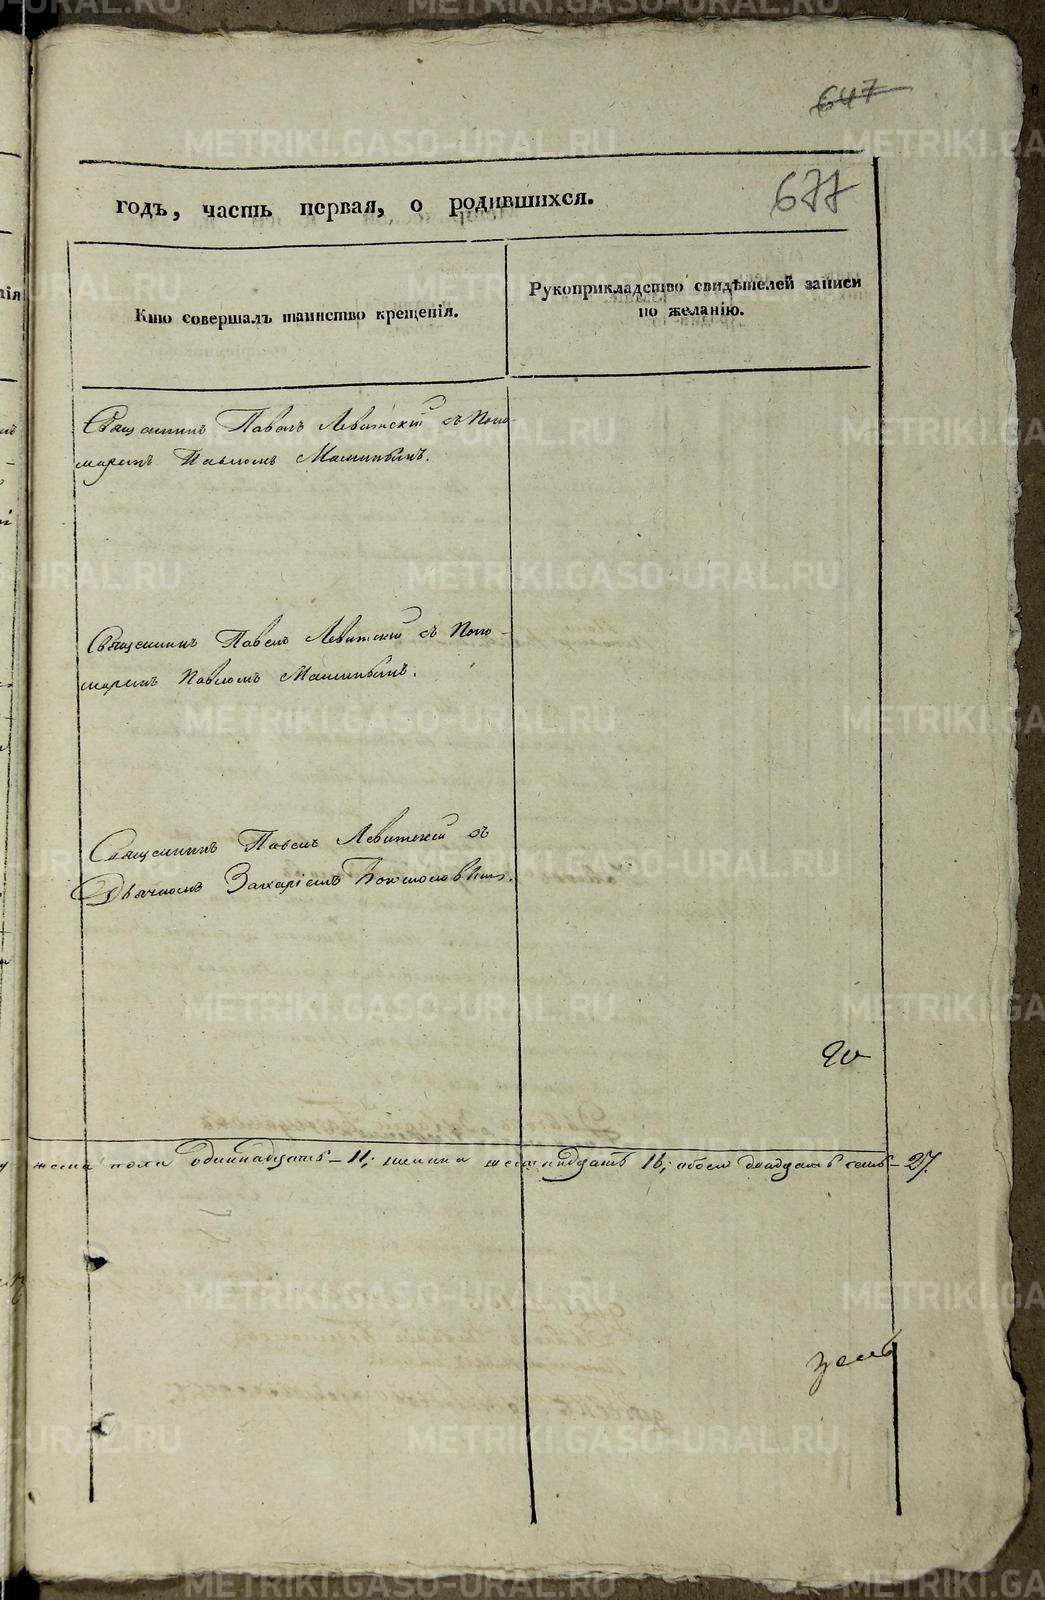 647
677
годъ, часть первая, о родившихся.
Кто совершалъ таинство крещенія.
Рукоприкладство свидѣтелей записи
по желанію.
Священникъ Павелъ Левитскій съ Поно-
маремъ Павломъ
Священникъ Павелъ Левитскій съ Поно-
маремъ Павломъ
Священникъ Павелъ Левитскій съ
Дьячкомъ Захаріемъ
пола одиннадцать – 11; женска шестнадцать 16; обоего двадцать семь – 27.
METRIKI.GASO-URAL.RU